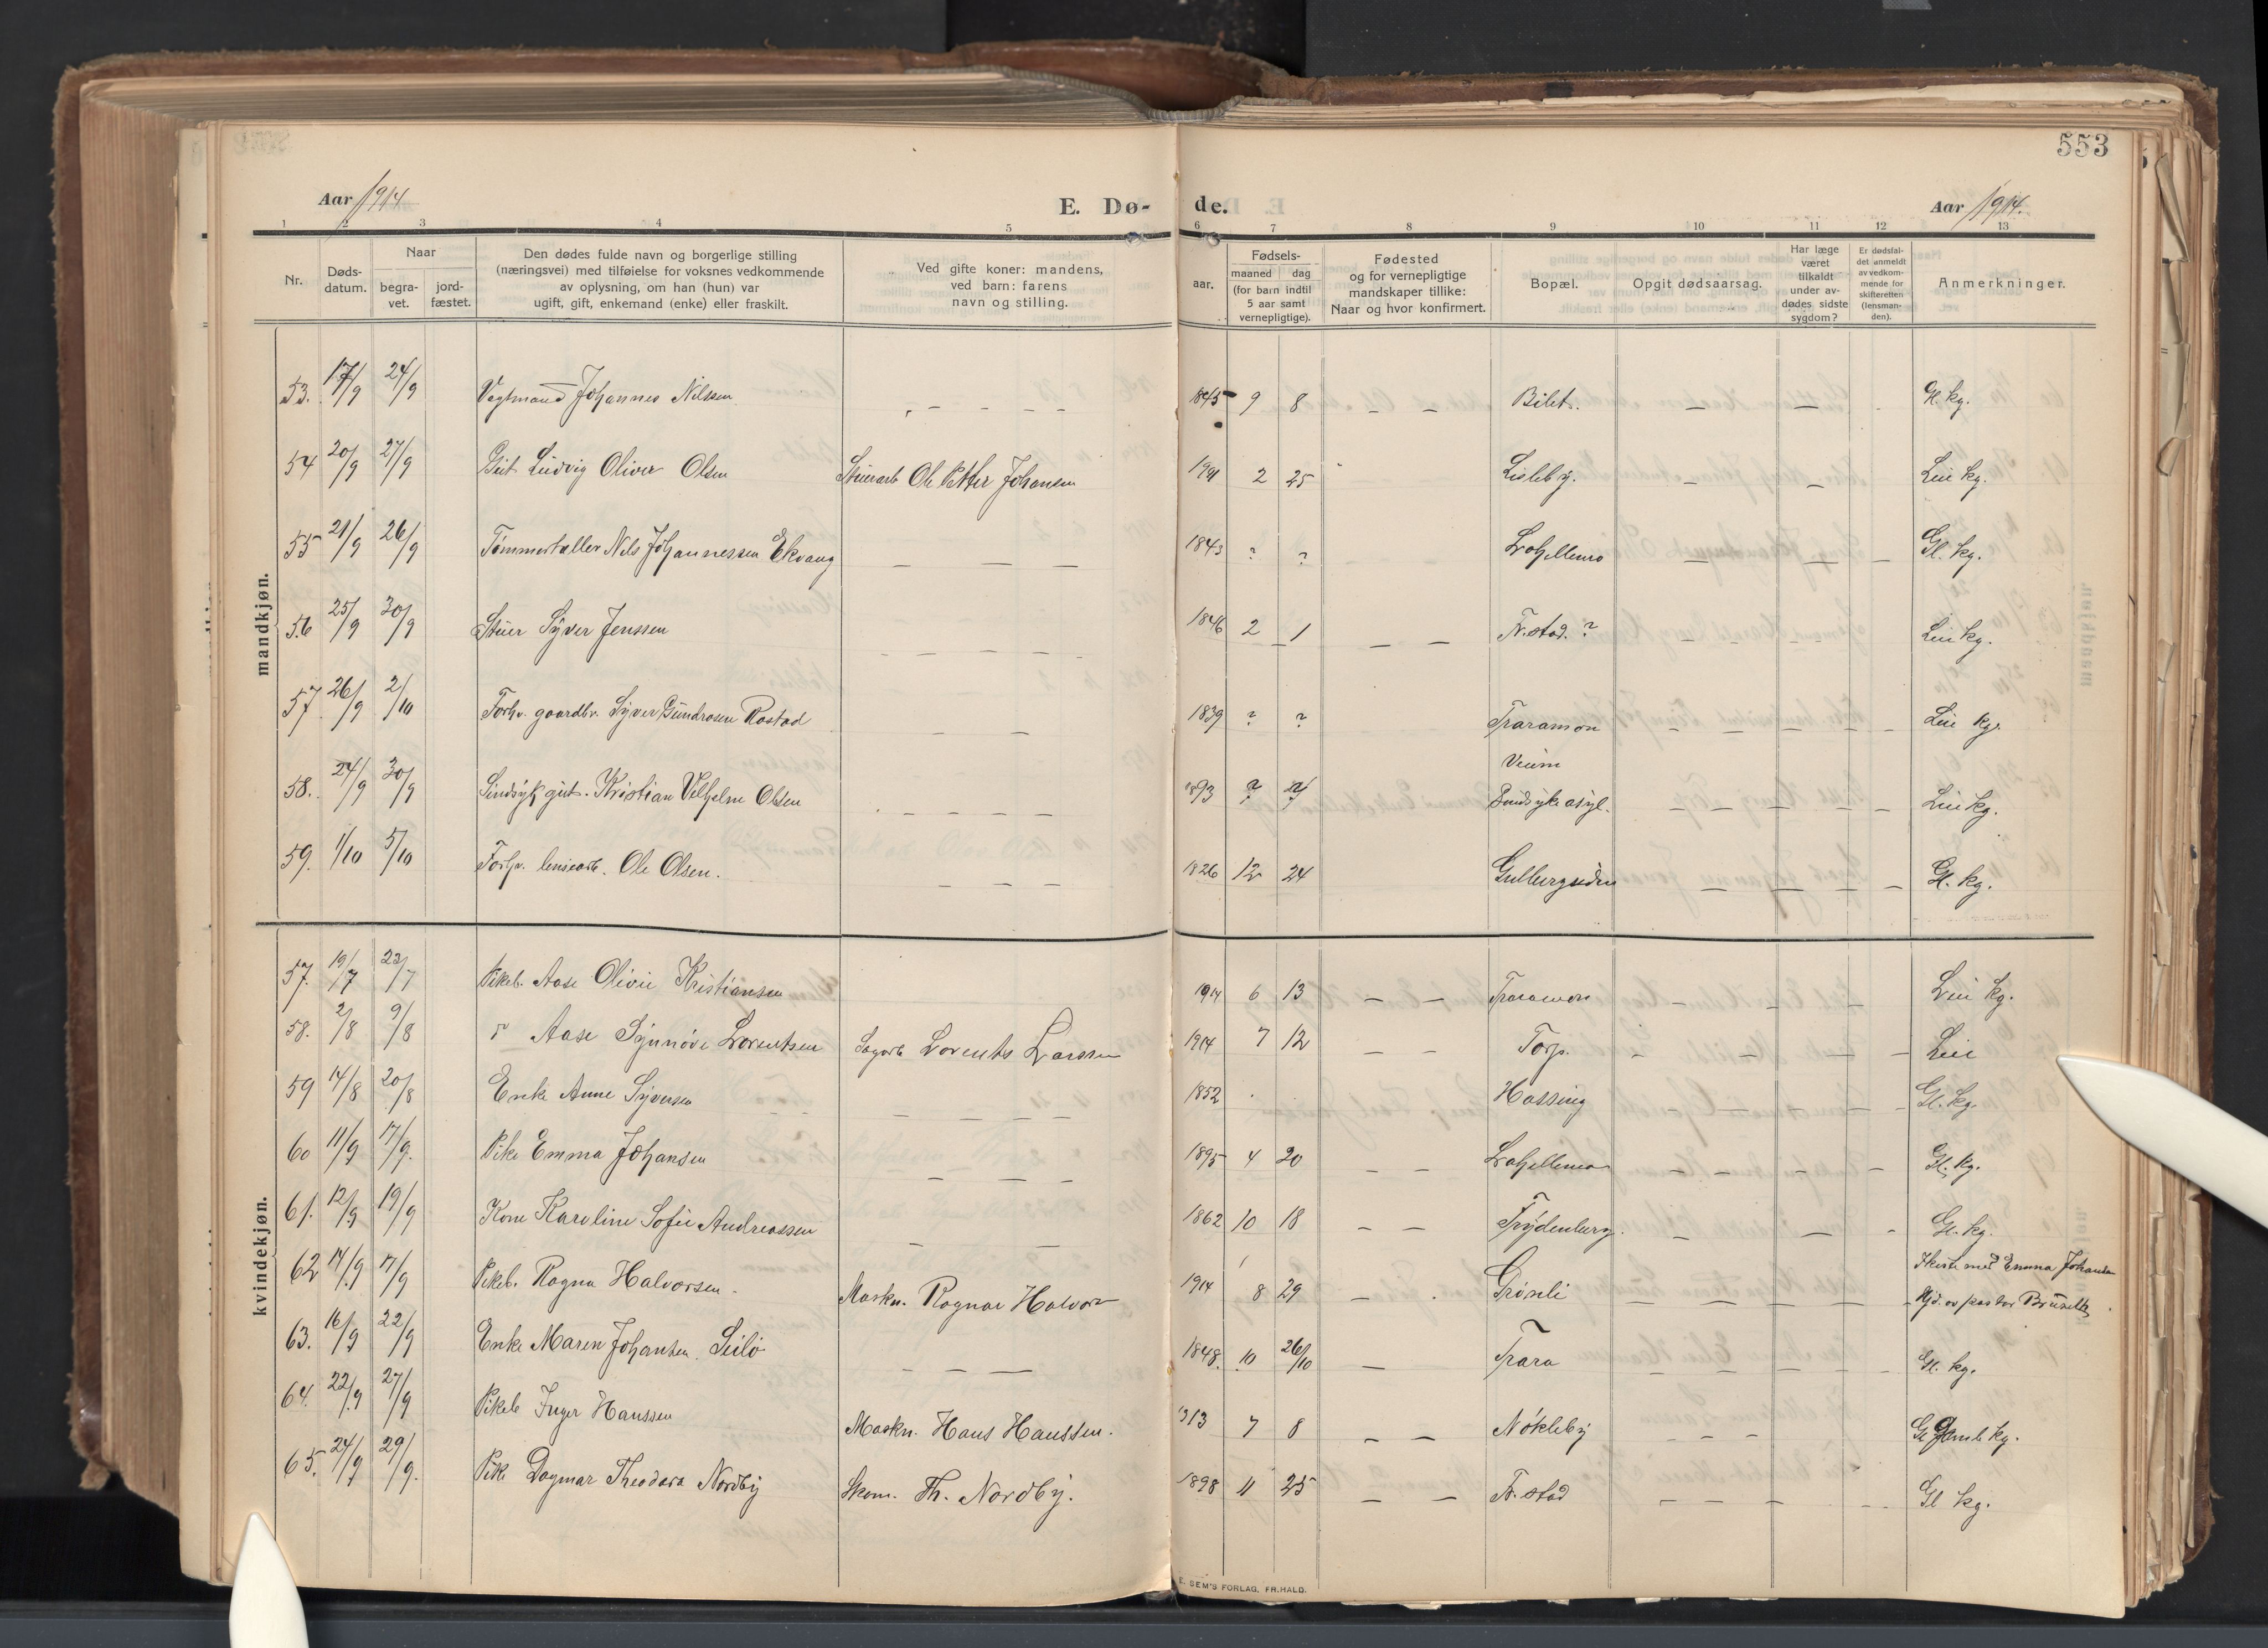 553
Aar 1914
E. Dø- de.
Aar 1914.
1 2 3 4 5 6 7 8 9 10 11 12 13
Nr.
Døds-
datum.
Naar
begra-
vet.
jord-
fæstet.
Den dødes fulde navn og borgerlige stilling
(næringsvei) med tilføielse for voksnes vedkommende
av oplysning, om han (hun) var
ugift, gift, enkemand (enke) eller fraskilt.
Ved gifte koner: mandens,
ved barn: farens
navn og stilling.
aar.
Fødsels-
maaned dag
(for barn indtil
5 aar samt
vernepligtige).
Fødested
og for vernepligtige
mandskaper tillike:
Naar og hvor konfirmert.
Bopæl.
Opgit dødsaarsag.
Har læge
været
tilkaldt
under av-
dødes sidste
sygdom?
Er dødsfal-
det anmeldt
av vedkom-
mende for
skifteretten
(lensman-
den).
Anmerkninger.
mandkjøn.
53. 17/9 24/9 Vegtmand Johannes Nilssen - - - - - 1845 9 8 - - Bilet. - - Gl. kg.
54 20/9 27/9 Gut Ludvig Oliver Olsen Stuerarb Ole Petter Johansen 2 25 Lisleby. - - Lei kg.
55 21/9 26/9 Tømmertæller Nils Johannessen Ekvang - - - 1843 ? ? Lahellemo - - - Gl. kg.
56 25/9 30/9 Stuer Syver Jenssen - - - - - 1846 2 1 - - Fr.stad. ? - - - - Lei kg.
57 26/9 2/10 Forhv. gaardbr. Syver Gundrosen Rostad - - - 1839 ? ? Traramon - - - - - Lei kg.
58. 24/9 30/9 Sindsyk gut. Kristian Vilhelm Olsen - - - - 1893 ? ? Veum
Sindsyke asyl. - - - - - Lei kg.
59. 1/10 5/10 Forhv. lensearb. Ole Olsen. - - - 1826 12 24 - - - - Gl. kg.
kvindekjøn.
57. 19/7 22/7 Pikeb. Aase Olivie Kristiansen 1914 6 13 - - Traramon - - - - Lei kg.
58. 2/8 9/8 " Aase Synnøve Lorentsen Sagarb Lorents Larssen 1914 7 12 - - Torp. - - - - Lei
59 14/8 20/8 Enke Anne Syversen - - - 1852 Hassing - - - - - Gl. kg.
60 11/9 17/9. Pike Emma Johansen - - - 1895 4 20 - - Lahellemoen - - - - Gl. kg.
61. 12/9 19/9 Kone Karoline Sofie Andreassen - - 1862 10 18 - - Frydenberg. - - - Gl. kg.
62 14/9 17/9 Pikeb. Ragna Halvorsen. Maskn. Ragnar Halvor 1914 8 29 - . Grønli - - - - - med Emma Johansen
av pastor
63. 16/9 22/9 Enke Maren Johansen - - - 1848. 10 26/10 - Trara - - - - - Gl. kg.
64. 22/9 27/9 Pikeb Inger Hanssen Maskn. Hans Hanssen. 1913 7 8 - - Nøkleby - - - Gamle kg.
65. 24/9 29/9. Pike Dagmar Theodora Nordby Skom. Th. Nordby. 1898 11 25 - - Fr.stad - - - - - Gl kg.
E. SEM'S FORLAG, FR.HALD.